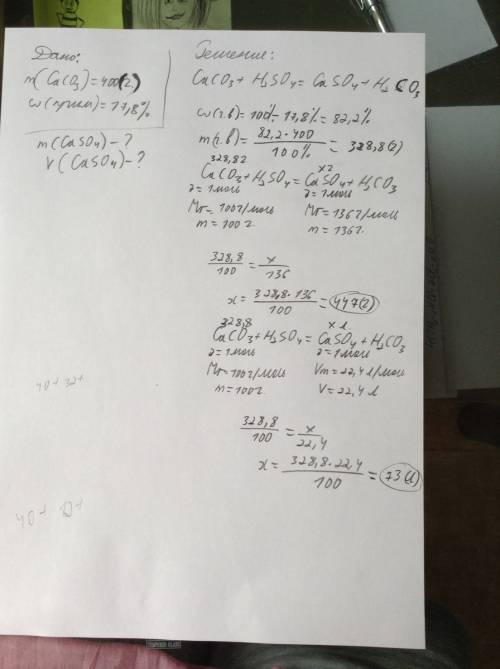 Дано:
m(CaCO3)=400(г.)
ω(прим)=17,8%
m(CaSO4)-?
V(CaSO4)-?
Решение:
CaCO3 + H2SO4 = CaSO4 + H2CO3
ω(ч.в)=100%-17,8%=82,2%
m(ч.в)= 82,2·400 / 100% = 328,8(г)
328,8г xг
CaCO3+H2SO4=CaSO4+H2CO3
ν=1моль ν=1моль
Mr=100г/моль Mr=136г/моль
m=100г. m=136г.
328,8/100 = x/136
x= 328,8·136 / 100 = 447(г)
328,8 x л.
CaCO3+H2SO4=CaSO4+H2CO3
ν=1моль ν=1моль
Mr=100г/моль Vm=22,4л/моль
m=100г. V=22,4л
328,8/100 = x/22,4
x= 328,8·22,4 / 100 = 73(л)
40+32+